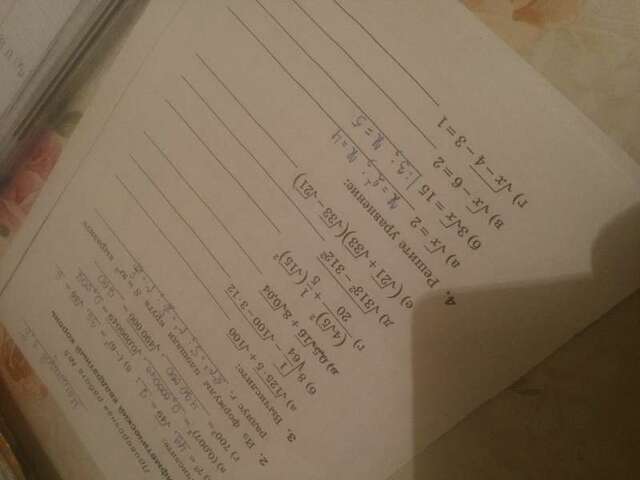 Проверочная работа №3
квадратный корень
(0,007)² = 0,000049, √0,000049 = 0,007
г) 700² = 490 000, √490 000 = 700
2. Из формулы площади круга S = πr² выразите
радиус r.
3. Вычислите:
а) √125·5 + √100
б) 8√1/64 − √100 − 3·12
в) 0,5√16 + 8√0,04
г) (4√5)²/20 + 1/5(√15)²
д) √313² − 312²
е) (√21 + √33)(√33 − √21)
4. Решите уравнение:
а) √x = 2 x = 2²; x = 4
б) 3√x = 15 | :3; x = 5
в) √x − 6 = 2
г) √x − 4 − 3 = 1